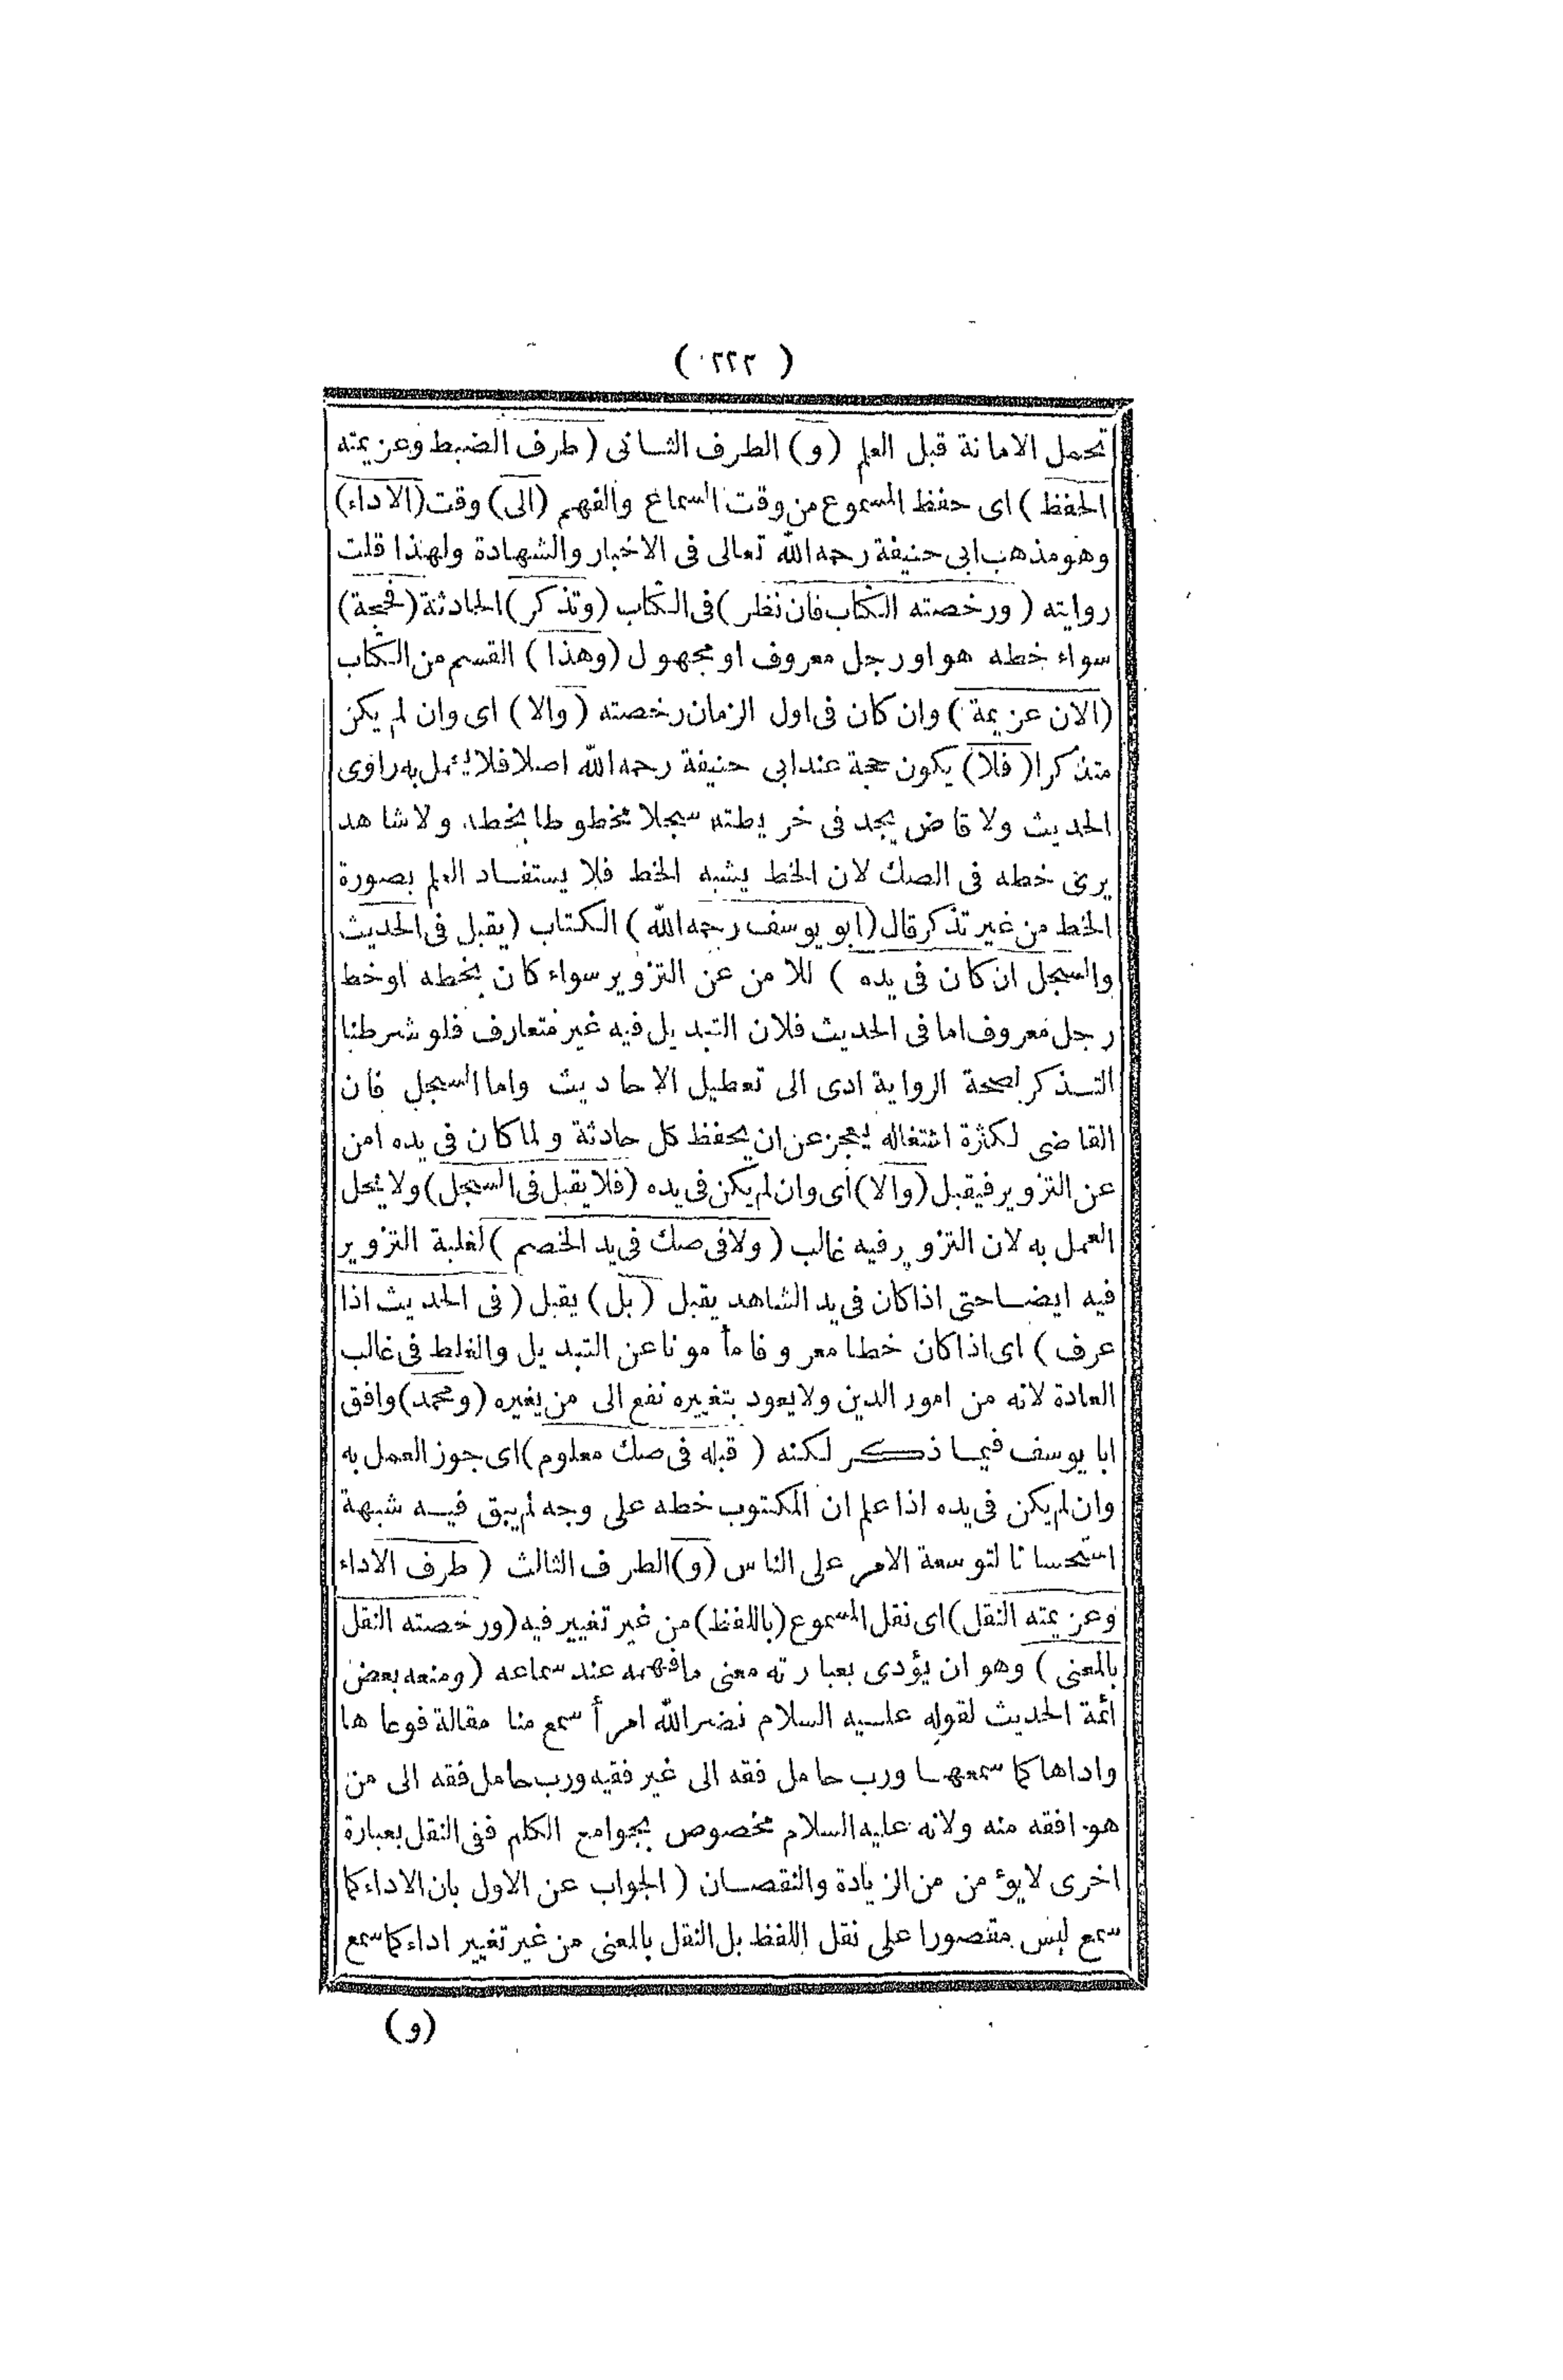 ( ٢٢٢ )
تحمل الامانة قبل العلم (و) الطرف الثانى (طرف الضبط وعزيمته
الحفظ) اى حفظ المسموع من وقت السماع والفهم (الى) وقت (الاداء)
وهو مذهب ابى حنيفة رحمه الله تعالى فى الاخبار والشهادة ولهذا قلت
روايته (ورخصته الكتاب فان نظر) فى الكتاب (وتذكر) الحادثة (فحجة)
سواء خطه هو او رجل معروف او مجهول (وهذا) القسم من الكتاب
(الان عزيمة) وان كان فى اول الزمان رخصته (والا) اى وان لم يكن
متذكرا (فلا) يكون حجة عند ابى حنيفة رحمه الله اصلا فلا يعمل به راوى
الحديث ولا قاض يجد فى خريطته سجلا مخطوطا بخطه ولا شاهد
يرى خطه فى الصك لان الخط يشبه الخط فلا يستفاد العلم بصورة
الخط من غير تذكر قال (ابو يوسف رحمه الله) الكتاب (يقبل فى الحديث
والسجل ان كان فى يده) للامن عن التزوير سواء كان بخطه او خط
رجل معروف اما فى الحديث فلان التبديل فيه غير متعارف فلو شرطنا
التذكر لصحة الرواية ادى الى تعطيل الاحاديث واما السجل فان
القاضى لكثرة اشتغاله يعجز عن ان يحفظ كل حادثة ولما كان فى يده امن
عن التزوير فيقبل (والا) اى وان لم يكن فى يده (فلا يقبل فى السجل) ولا يحل
العمل به لان التزوير فيه غالب (ولا فى صك فى يد الخصم) لغلبة التزوير
فيه ايضا حتى اذا كان فى يد الشاهد يقبل (بل) يقبل (فى الحديث اذا
عرف) اى اذا كان خطا معروفا مأمونا عن التبديل والغلط فى غالب
العادة لانه من امور الدين ولا يعود بتغييره نفع الى من يغيره (ومحمد) وافق
ابا يوسف فيما ذكر لكنه (قبله فى صك معلوم) اى جوز العمل به
وان لم يكن فى يده اذا علم ان المكتوب خطه على وجه لم يبق فيه شبهة
استحسانا لتوسعة الامر على الناس (و) الطرف الثالث (طرف الاداء
وعزيمته النقل) اى نقل المسموع (باللفظ) من غير تغيير فيه (ورخصته النقل
بالمعنى) وهو ان يؤدى بعبارته معنى ما فهمه عند سماعه (ومنعه بعض
ائمة الحديث لقوله عليه السلام نضر الله امرأ سمع منا مقالة فوعاها
واداها كما سمعها ورب حامل فقه الى غير فقيه ورب حامل فقه الى من
هو افقه منه ولانه عليه السلام مخصوص بجوامع الكلم ففى النقل بعبارة
اخرى لا يؤمن من الزيادة والنقصان (الجواب عن الاول بان الاداء كما
سمع ليس مقصورا على نقل اللفظ بل النقل بالمعنى من غير تغيير اداء كما سمع
(و)